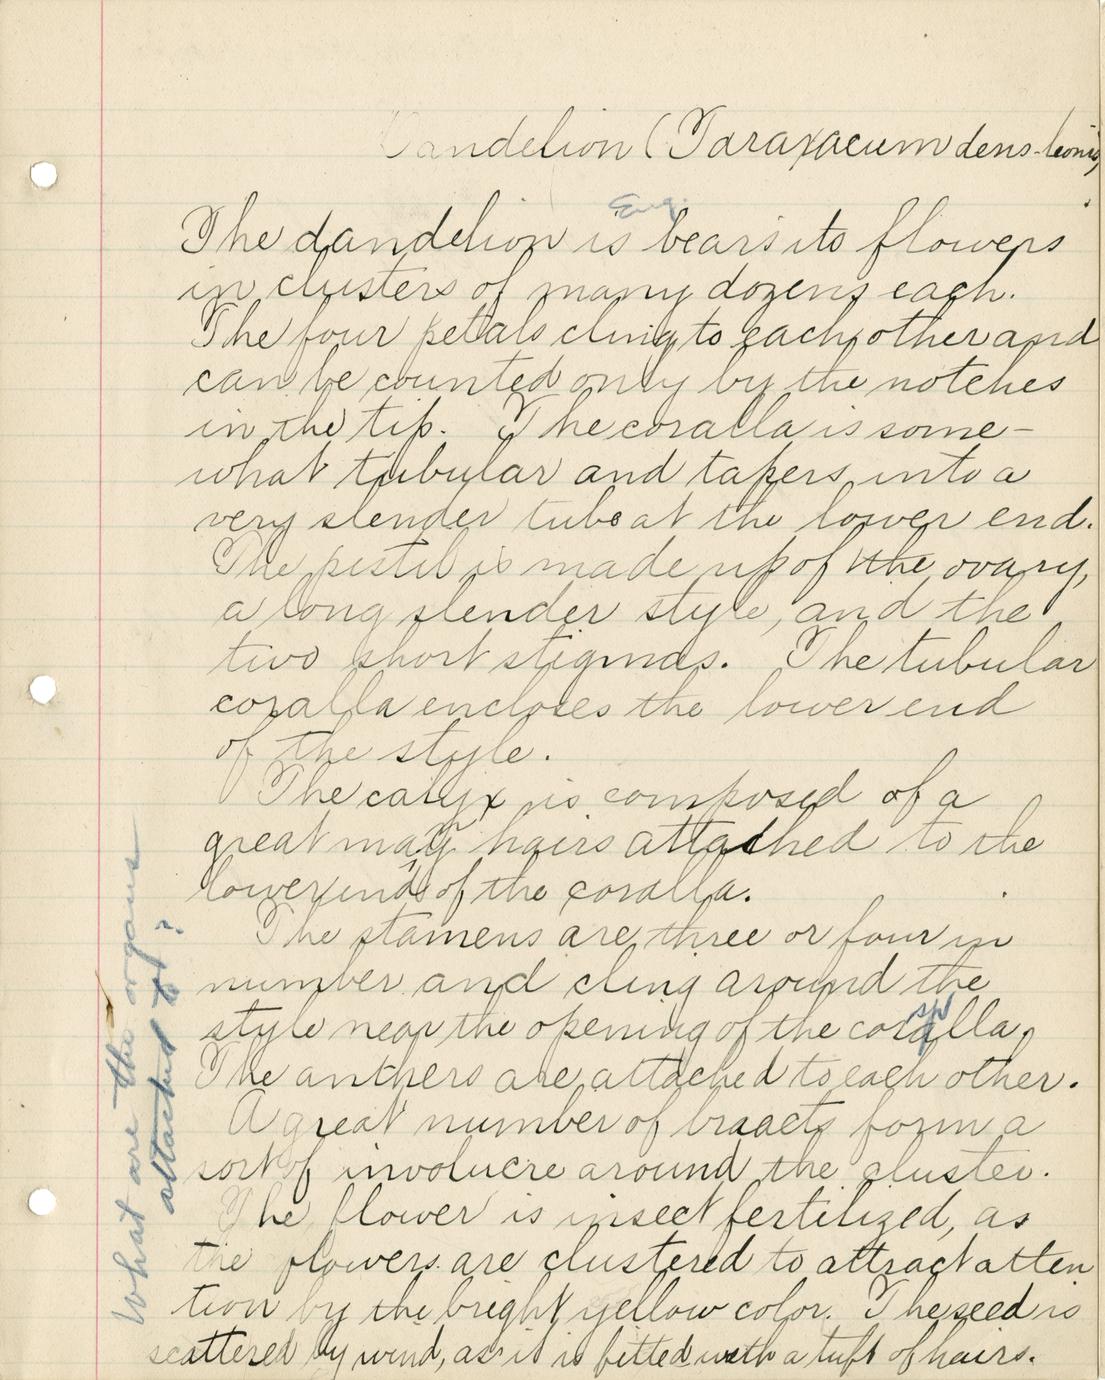 Dandelion (Taraxacum dens-leonis)
Eng.
The dandelion is bears its flowers
in clusters of many dozens each.
The four petals cling to each other and
can be counted only by the notches
in the tip. The coralla is some-
what tubular and tapers into a
very slender tube at the lower end.
The pistil is made up of the ovary,
a long slender style, and the
two short stigmas. The tubular
coralla encloses the lower end
of the style.
The calyx is composed of a
great may hairs attached to the
lower ends of the coralla.
The stamens are three or four in
number and cling around the
sp
style near the opening of the coralla.
The anthers are attached to each other.
A great number of braacts form a
sort of involucre around the cluster.
The flower is insect fertilized, as
the flowers are clustered to attract atten
tion by the bright yellow color. The seed is
scattered by wind, as it is fitted with a tuft of hairs.
What are the organs
attached to?